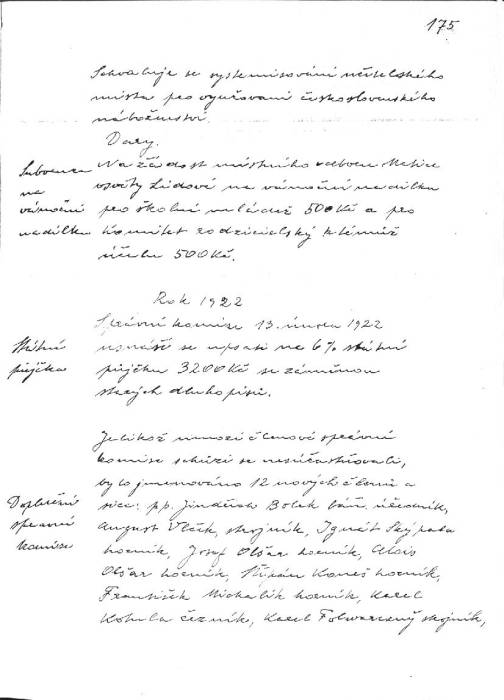 175
Schvaluje se systemisování učitelského
místa pro vyučování československého
náboženství.
Dary.
Subvence
na
vánoční
nadílku
Na žádost místního odboru Matice
osvěty Lidové na vánoční nadílku
pro školní mládež 500 Kč a pro
Komitét rodičielský k témuž
účelu 500 Kč.
Rok 1922
Státní
půjčka
Správní komise 13. února 1922
usnáší se upsati na 6% státní
půjčku 3200 Kč se záměnou
starých dluhopisů.
Doplnění
správní
komise
Jelikož mnozí členové správní
komise schůzí se nesúčastňovali,
bylo jmenováno 12 nových členů a
sice: pp. Jindřich Bolek báň. úředník,
August Vlček, strojník, Ignát Skýpala
horník, Josef Olšar horník, Alois
Olšar horník, Štěpán Kaneš horník,
František Michalík horník, Karel
Kohula čezník, Karel Folwarczný strojník,